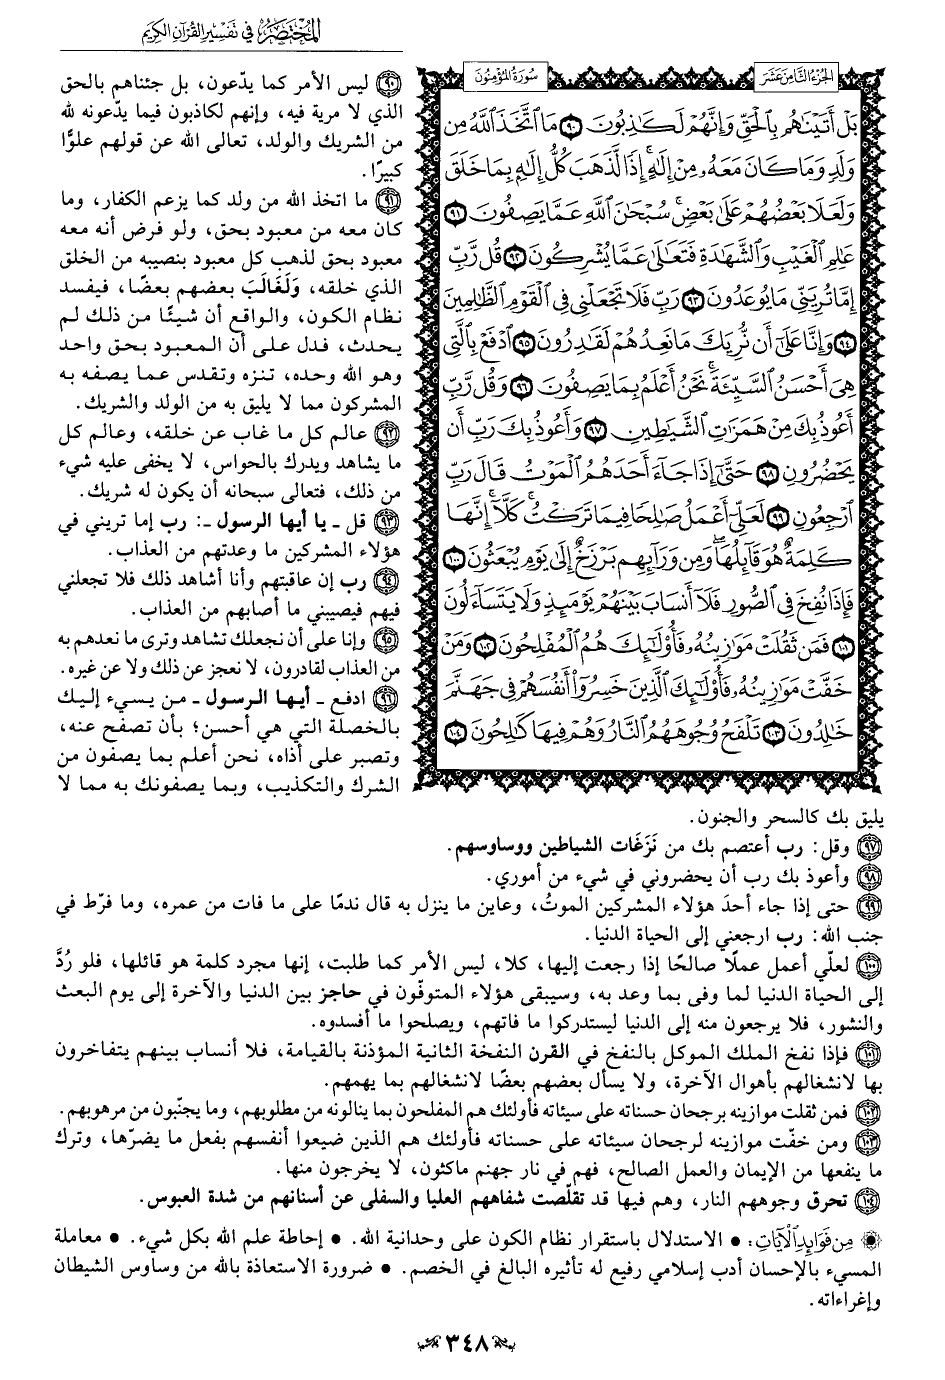 المختصر في تفسير القرآن الكريم
الجزء الثامن عشر
سورة المؤمنون
بَلْ أَتَيْنَٰهُم بِٱلْحَقِّ وَإِنَّهُمْ لَكَٰذِبُونَ ۝٩٠ مَا ٱتَّخَذَ ٱللَّهُ مِن
وَلَدٍ وَمَا كَانَ مَعَهُۥ مِنْ إِلَٰهٍ ۚ إِذًا لَّذَهَبَ كُلُّ إِلَٰهٍۭ بِمَا خَلَقَ
وَلَعَلَا بَعْضُهُمْ عَلَىٰ بَعْضٍ ۚ سُبْحَٰنَ ٱللَّهِ عَمَّا يَصِفُونَ ۝٩١
عَٰلِمِ ٱلْغَيْبِ وَٱلشَّهَٰدَةِ فَتَعَٰلَىٰ عَمَّا يُشْرِكُونَ ۝٩٢ قُل رَّبِّ
إِمَّا تُرِيَنِّي مَا يُوعَدُونَ ۝٩٣ رَبِّ فَلَا تَجْعَلْنِي فِي ٱلْقَوْمِ ٱلظَّٰلِمِينَ
۝٩٤ وَإِنَّا عَلَىٰٓ أَن نُّرِيَكَ مَا نَعِدُهُمْ لَقَٰدِرُونَ ۝٩٥ ٱدْفَعْ بِٱلَّتِي
هِيَ أَحْسَنُ ٱلسَّيِّئَةَ ۚ نَحْنُ أَعْلَمُ بِمَا يَصِفُونَ ۝٩٦ وَقُل رَّبِّ
أَعُوذُ بِكَ مِنْ هَمَزَٰتِ ٱلشَّيَٰطِينِ ۝٩٧ وَأَعُوذُ بِكَ رَبِّ أَن
يَحْضُرُونِ ۝٩٨ حَتَّىٰٓ إِذَا جَآءَ أَحَدَهُمُ ٱلْمَوْتُ قَالَ رَبِّ
ٱرْجِعُونِ ۝٩٩ لَعَلِّيٓ أَعْمَلُ صَٰلِحًا فِيمَا تَرَكْتُ ۚ كَلَّآ ۚ إِنَّهَا
كَلِمَةٌ هُوَ قَآئِلُهَا ۖ وَمِن وَرَآئِهِم بَرْزَخٌ إِلَىٰ يَوْمِ يُبْعَثُونَ ۝١٠٠
فَإِذَا نُفِخَ فِي ٱلصُّورِ فَلَآ أَنسَابَ بَيْنَهُمْ يَوْمَئِذٍ وَلَا يَتَسَآءَلُونَ
۝١٠١ فَمَن ثَقُلَتْ مَوَٰزِينُهُۥ فَأُو۟لَٰٓئِكَ هُمُ ٱلْمُفْلِحُونَ ۝١٠٢ وَمَنْ
خَفَّتْ مَوَٰزِينُهُۥ فَأُو۟لَٰٓئِكَ ٱلَّذِينَ خَسِرُوٓا۟ أَنفُسَهُمْ فِي جَهَنَّمَ
خَٰلِدُونَ ۝١٠٣ تَلْفَحُ وُجُوهَهُمُ ٱلنَّارُ وَهُمْ فِيهَا كَٰلِحُونَ ۝١٠٤
۝٩٠ ليس الأمر كما يدّعون، بل جئناهم بالحق
الذي لا مرية فيه، وإنهم لكاذبون فيما يدّعونه لله
من الشريك والولد، تعالى الله عن قولهم علوًّا
كبيرًا.
۝٩١ ما اتخذ الله من ولد كما يزعم الكفار، وما
كان معه من معبود بحق، ولو فرض أنه معه
معبود بحق لذهب كل معبود بنصيبه من الخلق
الذي خلقه، وَلَغَالَبَ بعضهم بعضًا، فيفسد
نظام الكون، والواقع أن شيئًا من ذلك لم
يحدث، فدل على أن المعبود بحق واحد
وهو الله وحده، تنزه وتقدس عما يصفه به
المشركون مما لا يليق به من الولد والشريك.
۝٩٢ عالم كل ما غاب عن خلقه، وعالم كل
ما يشاهد ويدرك بالحواس، لا يخفى عليه شيء
من ذلك، فتعالى سبحانه أن يكون له شريك.
۝٩٣ قل ـ يا أيها الرسول ـ: رب إما تريني في
هؤلاء المشركين ما وعدتهم من العذاب.
۝٩٤ رب إن عاقبتهم وأنا أشاهد ذلك فلا تجعلني
فيهم فيصيبني ما أصابهم من العذاب.
۝٩٥ وإنا على أن نجعلك تشاهد وترى ما نعدهم به
من العذاب لقادرون، لا نعجز عن ذلك ولا عن غيره.
۝٩٦ ادفع ـ أيها الرسول ـ من يسيء إليك
بالخصلة التي هي أحسن؛ بأن تصفح عنه،
وتصبر على أذاه، نحن أعلم بما يصفون من
الشرك والتكذيب، وبما يصفونك به مما لا
يليق بك كالسحر والجنون.
۝٩٧ وقل: رب أعتصم بك من نَزَغَات الشياطين ووساوسهم.
۝٩٨ وأعوذ بك رب أن يحضروني في شيء من أموري.
۝٩٩ حتى إذا جاء أحدَ هؤلاء المشركين الموتُ، وعاين ما ينزل به قال ندمًا على ما فات من عمره، وما فرّط في
جنب الله: رب ارجعني إلى الحياة الدنيا.
۝١٠٠ لعلّي أعمل عملًا صالحًا إذا رجعت إليها، كلا، ليس الأمر كما طلبت، إنها مجرد كلمة هو قائلها، فلو رُدَّ
إلى الحياة الدنيا لما وفى بما وعد به، وسيبقى هؤلاء المتوفّون في حاجز بين الدنيا والآخرة إلى يوم البعث
والنشور، فلا يرجعون منه إلى الدنيا ليستدركوا ما فاتهم، ويصلحوا ما أفسدوه.
۝١٠١ فإذا نفخ الملك الموكل بالنفخ في القرن النفخة الثانية المؤذنة بالقيامة، فلا أنساب بينهم يتفاخرون
بها لانشغالهم بأهوال الآخرة، ولا يسأل بعضهم بعضًا لانشغالهم بما يهمهم.
۝١٠٢ فمن ثقلت موازينه برجحان حسناته على سيئاته فأولئك هم المفلحون بما ينالونه من مطلوبهم، وما يجنّبون من مرهوبهم.
۝١٠٣ ومن خفّت موازينه لرجحان سيئاته على حسناته فأولئك هم الذين ضيعوا أنفسهم بفعل ما يضرّها، وترك
ما ينفعها من الإيمان والعمل الصالح، فهم في نار جهنم ماكثون، لا يخرجون منها.
۝١٠٤ تحرق وجوههم النار، وهم فيها قد تقلّصت شفاههم العليا والسفلى عن أسنانهم من شدة العبوس.
من فوائد الآيات: • الاستدلال باستقرار نظام الكون على وحدانية الله. • إحاطة علم الله بكل شيء. • معاملة
المسيء بالإحسان أدب إسلامي رفيع له تأثيره البالغ في الخصم. • ضرورة الاستعاذة بالله من وساوس الشيطان
وإغراءاته.
٣٤٨